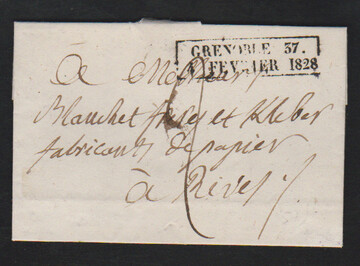 GRENOBLE 37.
4 FEVRIER 1828
à Messieurs
Blanchet frères et Kleber
fabricants de papier
à Rives